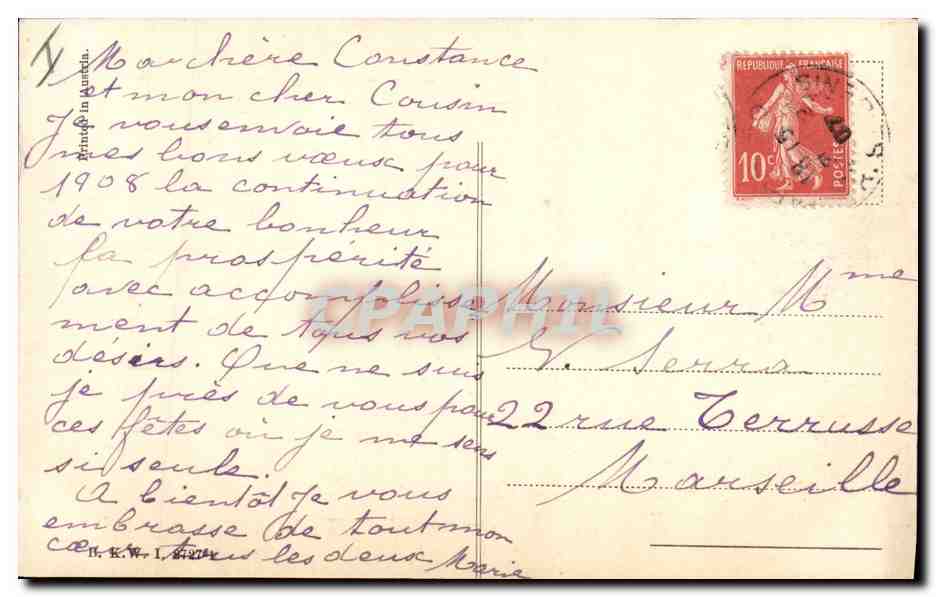 Ma chère Constance
et mon cher Cousin
Je vous envoie tous
mes bons vœux pour
1908 la continuation
de votre bonheur
la prospérité
avec accomplisse
ment de tous vos
désirs. Que ne suis
je près de vous pour
ces fêtes où je me sens
si seule.
A bientôt Je vous
embrasse de tout mon
cœur tous les deux Marie
Printed in Austria.
B. K. W. I,
REPUBLIQUE FRANÇAISE
10c
POSTES
Monsieur Mme
V. Serra
22 rue Terrusse
Marseille
CPAPHIL